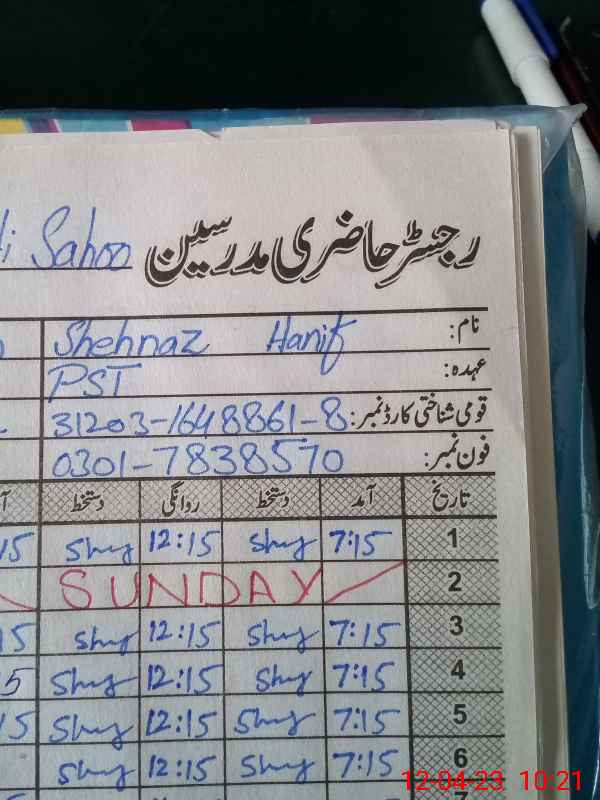 Sahoo رجسٹر حاضری مدرسین
نام: Shehnaz Hanif
عہدہ: PST
قومی شناختی کارڈ نمبر: 31203-1648861-8
فون نمبر: 0301-7838570
تاریخ آمد دستخط روانگی دستخط
1 7:15 Shy 12:15 Shy 15
2 SUNDAY
3 7:15 Shy 12:15 Shy 15
4 7:15 Shy 12:15 Shy 5
5 7:15 Shy 12:15 Shy 15
6 7:15 Shy 12:15 Shy
7
12-04-23 10:21